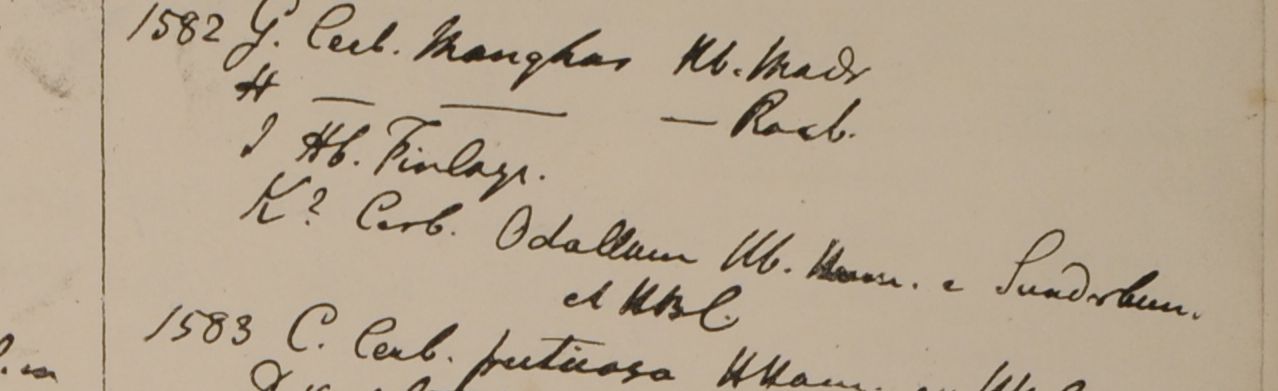 1582 G. Cerb. Manghas Hb. Madr
H — — — Roxb.
I Hb. Finlays.
K? Cerb. Odallam Hb. Ham. e Sundrbun.
et HBC.
1583 C. Cerb. fruticosa HHam.